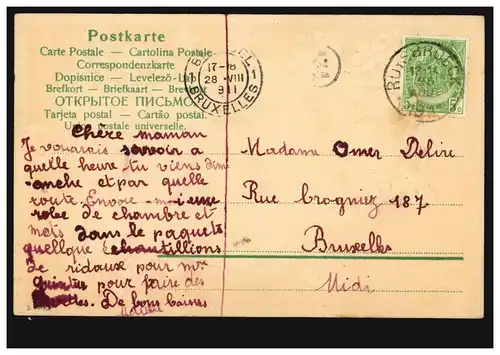 Postkarte
Carte Postale — Cartolina Postale
Correspondenzkarte
Dopisnice — Levelező-Lap
Brefkort — Briefkaart — Brevkort
ОТКРЫТОЕ ПИСЬМО
Tarjeta postal — Cartão postal.
Union postale universelle.
17-18
28 - VIII
BRUXELLES
1
5
Chère maman
Je vouarais savoir a
quelle heure tu viens dim
anche et par quelle
route. Envoie-moi une
robe de chambre et
mets dans le paquets
quellque échantillions
de ridaux pour mr
pour faire des
De bons baisers
Madame Omer Delire
Rue Crogniez 187
Bruxelles
Midi